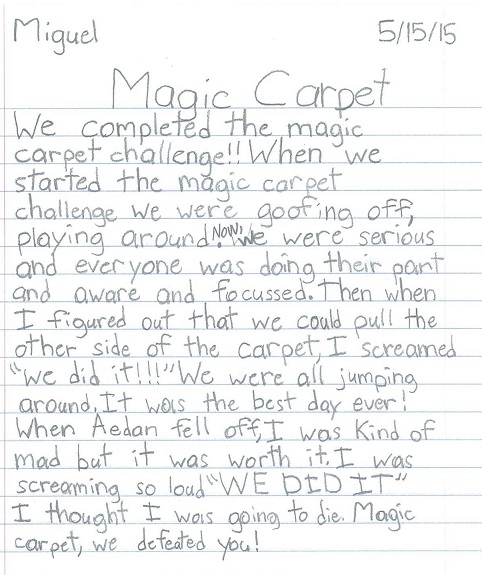 Miguel 5/15/15
Magic Carpet
We completed the magic
carpet challenge!! When we
started the magic carpet
challenge we were goofing off,
playing around! Now, we were serious
and everyone was doing their part
and aware and focussed. Then when
I figured out that we could pull the
other side of the carpet, I screamed
"we did it!!!" We were all jumping
around. It was the best day ever!
When Aedan fell off, I was kind of
mad but it was worth it. I was
screaming so loud "WE DID IT"
I thought I was going to die. Magic
carpet, we defeated you!